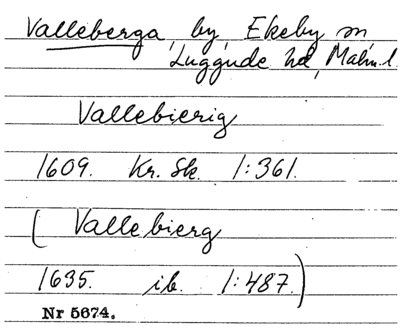 Valleberga, by, Ekeby sn,
Luggude hd, Malm.l.
Vallebierig
1609. Kr. Sk. 1:361.
(Vallebierg
1635. ib. 1:487.)
Nr 5674.